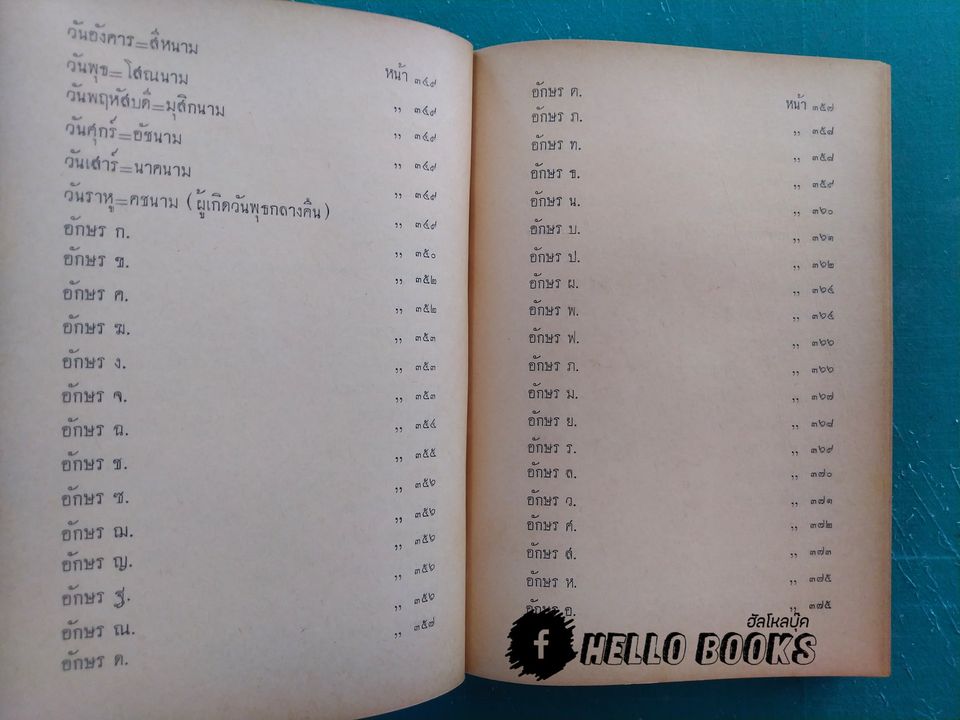 วันอังคาร=สีหนาม หน้า ๓๔๙
วันพุธ=โสณนาม ,, ๓๔๙
วันพฤหัสบดี=มุสิกนาม ,, ๓๔๙
วันศุกร์=อัชนาม ,, ๓๔๙
วันเสาร์=นาคนาม ,, ๓๔๙
วันราหู=คชนาม (ผู้เกิดวันพุธกลางคืน) ,, ๓๔๙
อักษร ก. ,, ๓๕๐
อักษร ข. ,, ๓๕๒
อักษร ค. ,, ๓๕๒
อักษร ฆ. ,, ๓๕๓
อักษร ง. ,, ๓๕๓
อักษร จ. ,, ๓๕๓
อักษร ฉ. ,, ๓๕๔
อักษร ช. ,, ๓๕๕
อักษร ซ. ,, ๓๕๖
อักษร ฌ. ,, ๓๕๖
อักษร ญ. ,, ๓๕๖
อักษร ฐ. ,, ๓๕๖
อักษร ณ. ,, ๓๕๖
อักษร ด. ,, ๓๕๗
อักษร ต. หน้า ๓๕๗
อักษร ถ. ,, ๓๕๘
อักษร ท. ,, ๓๕๘
อักษร ธ. ,, ๓๕๙
อักษร น. ,, ๓๖๐
อักษร บ. ,, ๓๖๑
อักษร ป. ,, ๓๖๒
อักษร ผ. ,, ๓๖๔
อักษร พ. ,, ๓๖๔
อักษร ฟ. ,, ๓๖๖
อักษร ภ. ,, ๓๖๖
อักษร ม. ,, ๓๖๗
อักษร ย. ,, ๓๖๘
อักษร ร. ,, ๓๖๙
อักษร ล. ,, ๓๗๐
อักษร ว. ,, ๓๗๑
อักษร ศ. ,, ๓๗๒
อักษร ส. ,, ๓๗๓
อักษร ห. ,, ๓๗๕
อักษร อ. ,, ๓๗๕
ฮัลโหลบุ๊ค
f HELLO BOOKS